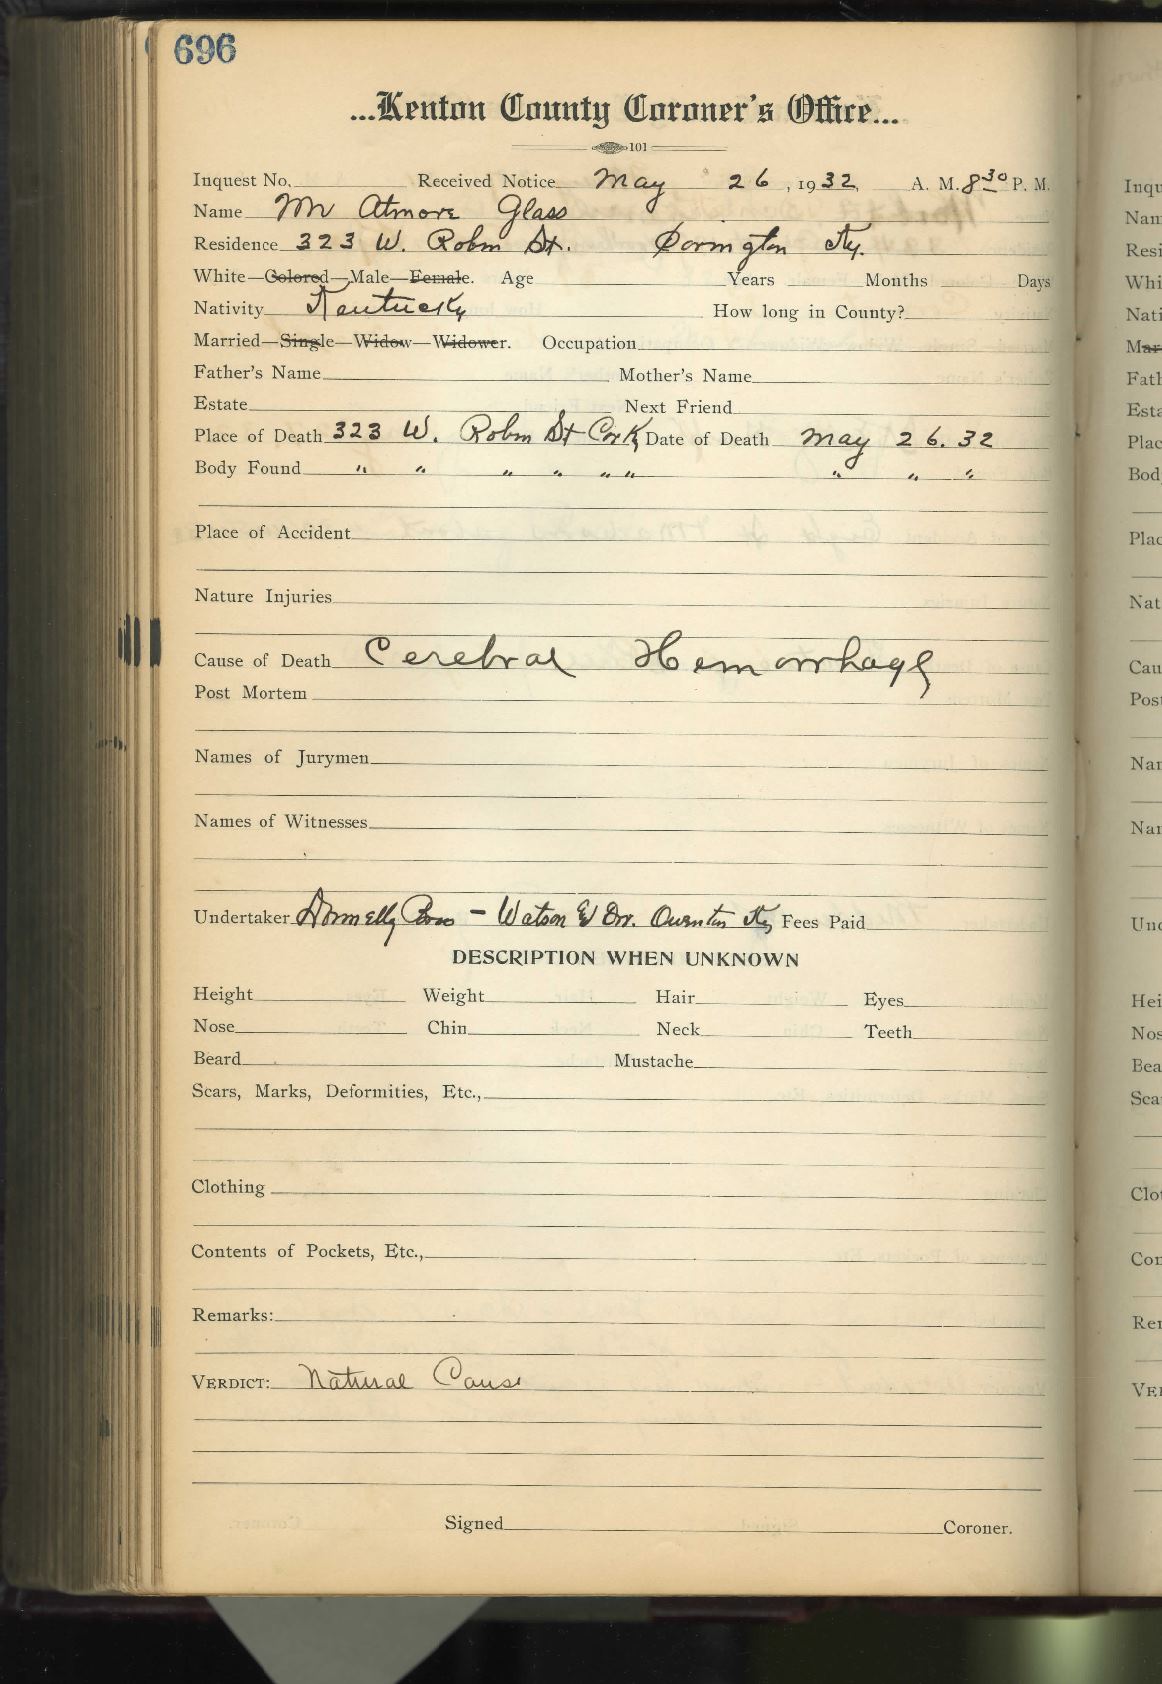 696
...Kenton County Coroner's Office...
101
Inquest No. Received Notice May 26, 1932, A. M. 8 30 P. M.
Name Mr Atmore Glass
Residence 323 W. Robin St. Covington Ky.
White—Colored—Male—Female. Age Years Months Days
Nativity Kentucky How long in County?
Married—Single—Widow—Widower. Occupation
Father's Name Mother's Name
Estate Next Friend
Place of Death 323 W. Robin St Cov Ky Date of Death May 26. 32
Body Found " " " " " " " " "
Place of Accident
Nature Injuries
Cause of Death Cerebral Hemorrhage
Post Mortem
Names of Jurymen
Names of Witnesses
Undertaker Donnelly Bros - Watson Owenton Ky Fees Paid
DESCRIPTION WHEN UNKNOWN
Height Weight Hair Eyes
Nose Chin Neck Teeth
Beard Mustache
Scars, Marks, Deformities, Etc.,
Clothing
Contents of Pockets, Etc.,
Remarks:
VERDICT: Natural Cause
Signed Coroner.